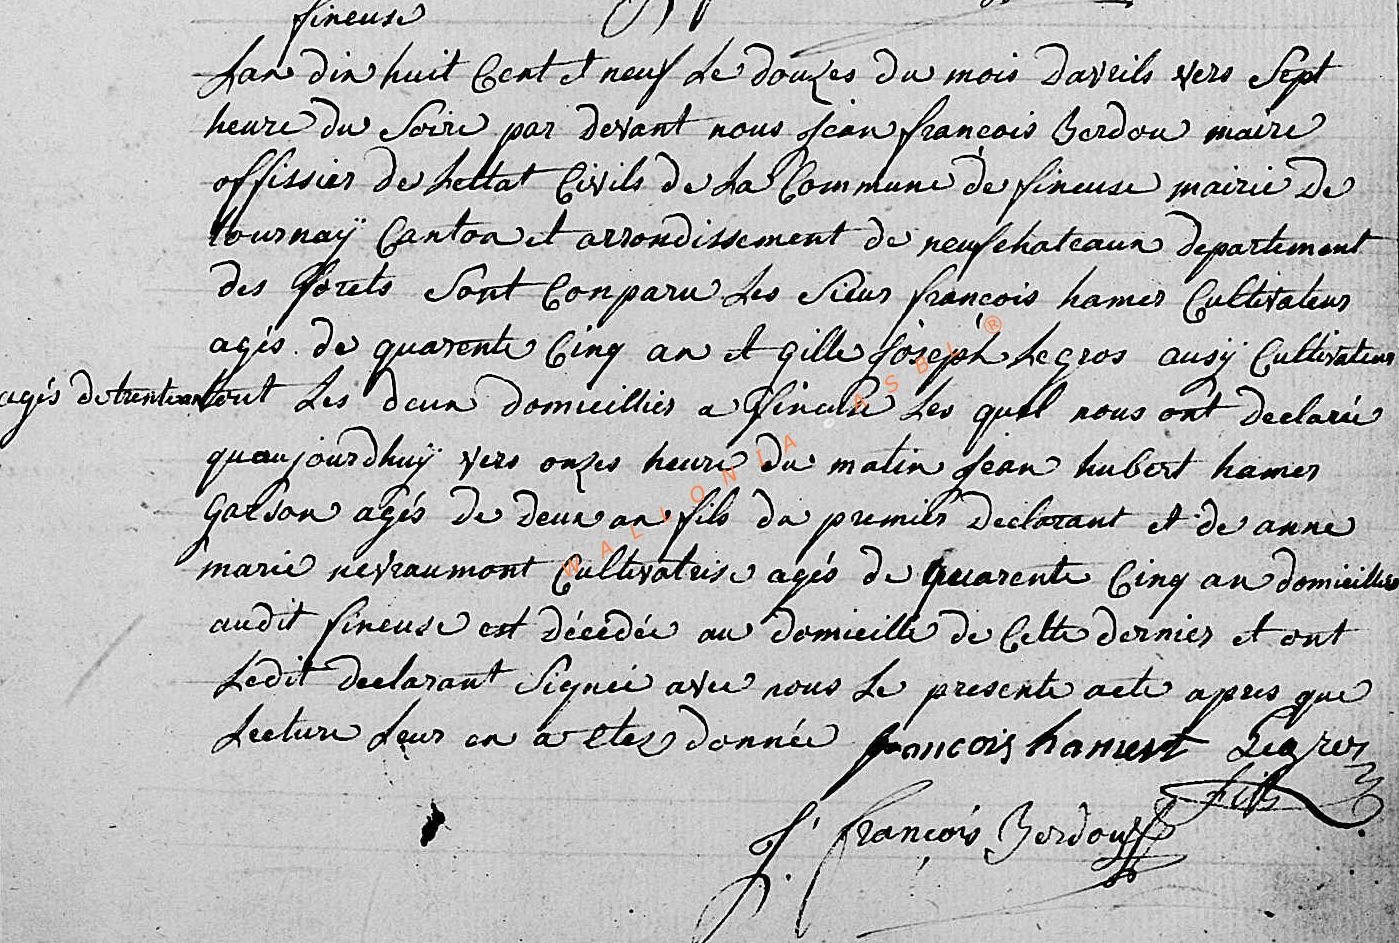 fineuse
Lan dix huit Cent et neuf Le douzes du mois Davrils vers Sept
heure du Soire par devant nous Jean françois Berdou maire
offissier de Lettat Civils de La Commune de fineuse mairie de
tournaÿ Canton et arrondissement de neufchateaux departement
des forets Sont Conparu Les Sieur françois hamer Cultivateur
agés de quarente Cinq an et gille Joseph Legros ausÿ Cultivateur
agés de trente an tout Les deux domicilliés a fineuse Les quel nous ont declarée
quaujourdhuÿ vers onzes heure du matin Jean hubert hamer
garson agés de deux an fils du premier declarant et de anne
marie nevraumont Cultivatrise agés de quarente Cinq an domicilliés
audit fineuse est décédée au domicille de Cette dernier et ont
Ledit declarant Signée avec nous Le presente acte apres que
Lecture Leur en a etez donnée françois hamert Legros
fils
J. françois Berdou
WALLONIA . ASBL ®